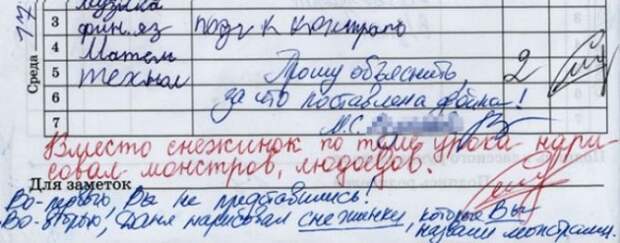 17
Среда
музыка
3 фин. яз подг к контроль
4 Матем
5 технол Прошу объяснить, 2
6 за что поставлена двойка!
7 М.С.
Вместо снежинок по теме урока нари
совал монстров, людоедов.
Для заметок
Во-первых, Вы не представились!
Во-вторых, Даня нарисовал снежинки, которые Вы
назвали монстрами.